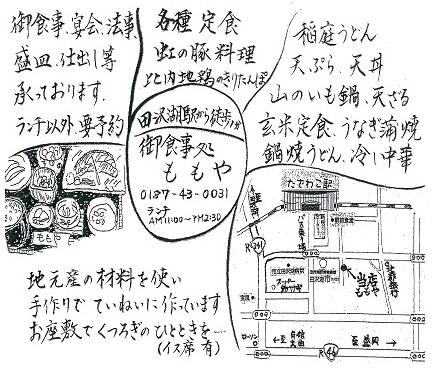 御食事、宴会、法事
盛皿、仕出し等
承っております。
ランチ以外要予約
各種定食
虹の豚料理
比内地鶏のきりたんぽ
田沢湖駅から徒歩1分
御食事処
ももや
0187-43-0031
ランチ
AM11:00〜PM2:30
稲庭うどん
天ぷら、天丼
山のいも鍋、天ざる
玄米定食、うなぎ蒲焼
鍋焼うどん、冷し中華
ももや
地元産の材料を使い
手作りでていねいに作っています
お座敷でくつろぎのひとときを…
(イス席有)
たざわこ駅
バス
当店
ももや
ローソン
至盛岡
R46